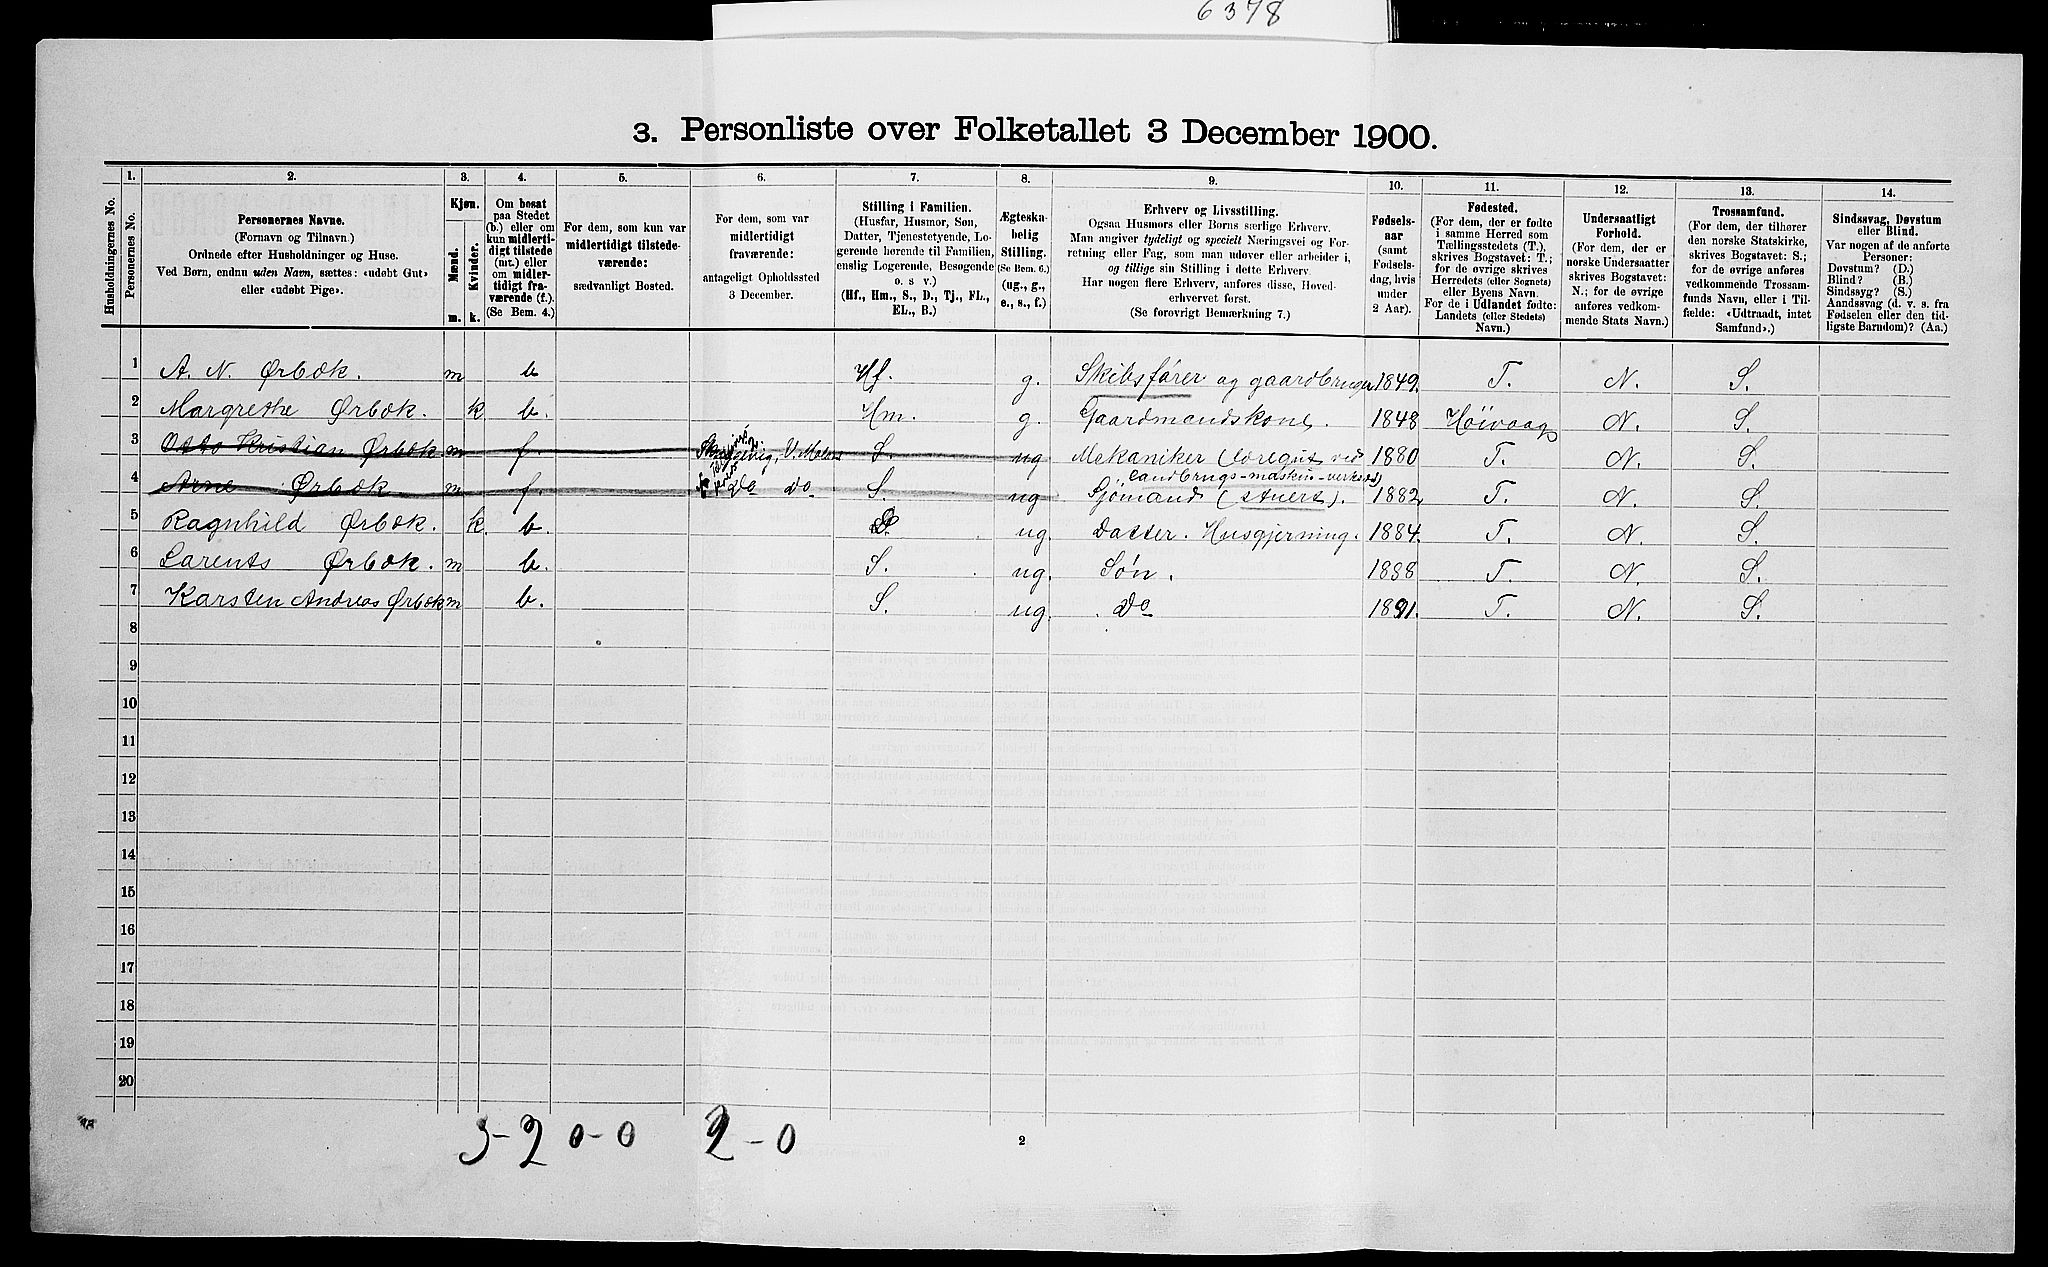 6378
3. Personliste over Folketallet 3 December 1900.
Husholdningernes No.
1. Personernes No.
2. Personernes Navne. (Fornavn og Tilnavn.) Ordnede efter Husholdninger og Huse. Ved Børn, endnu uden Navn, sættes: «udøbt Gut» eller «udøbt Pige».
3. Kjøn. Mænd. m. Kvinder. k.
4. Om bosat paa Stedet (b.) eller om kun midlertidigt tilstede (mt.) eller om midlertidigt fraværende (f.). (Se Bem. 4.)
5. For dem, som kun var midlertidigt tilstedeværende: sædvanligt Bosted.
6. For dem, som var midlertidigt fraværende: antageligt Opholdssted 3 December.
7. Stilling i Familien. (Husfar, Husmor, Søn, Datter, Tjenestetyende, Logerende hørende til Familien, enslig Logerende, Besøgende o. s. v.) (Hf., Hm., S., D., Tj., FL., EL., B.)
8. Ægteskabelig Stilling. (Se Bem. 6.) (ug., g., e., s., f.)
9. Erhverv og Livsstilling. Ogsaa Husmors eller Børns særlige Erhverv. Man angiver tydeligt og specielt Næringsvei og Forretning eller Fag, som man udøver eller arbeider i, og tillige sin Stilling i dette Erhverv. Har nogen flere Erhverv, anføres disse, Hovederhvervet først. (Se forøvrigt Bemærkning 7.)
10. Fødselsaar (samt Fødselsdag, hvis under 2 Aar).
11. Fødested. (For dem, der er fødte i samme Herred som Tællingsstedets (T.), skrives Bogstavet: T.; for de øvrige skrives Herredets (eller Sognets) eller Byens Navn. For de i Udlandet fødte: Landets (eller Stedets) Navn.)
12. Undersaatligt Forhold. (For dem, der er norske Undersaatter skrives Bogstavet: N.; for de øvrige anføres vedkommende Stats Navn.)
13. Trossamfund. (For dem, der tilhører den norske Statskirke, skrives Bogstavet: S.; for de øvrige anføres vedkommende Trossamfunds Navn, eller i Tilfælde: «Udtraadt, intet Samfund».)
14. Sindssvag, Døvstum eller Blind. Var nogen af de anførte Personer: Døvstum? (D.) Blind? (B.) Sindssyg? (S.) Aandssvag (d. v. s. fra Fødselen eller den tidligste Barndom)? (Aa.)
1 A. N. Ørbæk. m b Hf. g. Skibsfører og gaardbruger 1849. T. N. S.
2 Margrethe Ørbæk. k b. Hm. g. Gaardmandskone. 1848 Høivaag N. S.
3 Otto Kristian Ørbæk m f. S. ug Mekaniker (læregut ved Landbrugs-maskin-verksted) 1880 T. N. S.
4 Arne Ørbæk m f. Do do S. ug Sjømand (stuert). 1882 T. N. S.
5 Ragnhild Ørbæk. k. b. D. ug. Datter. Husgjerning. 1884. T. N. S.
6 Larents Ørbæk. m b. S. ug. Søn. 1888 T. N. S.
7 Karsten Andreas Ørbæk m b. S. ug. Do 1891. T. N. S.
8
9
10
11
12
13
14
15
16
17
18
19
20
3-2 0-0 2-0
2